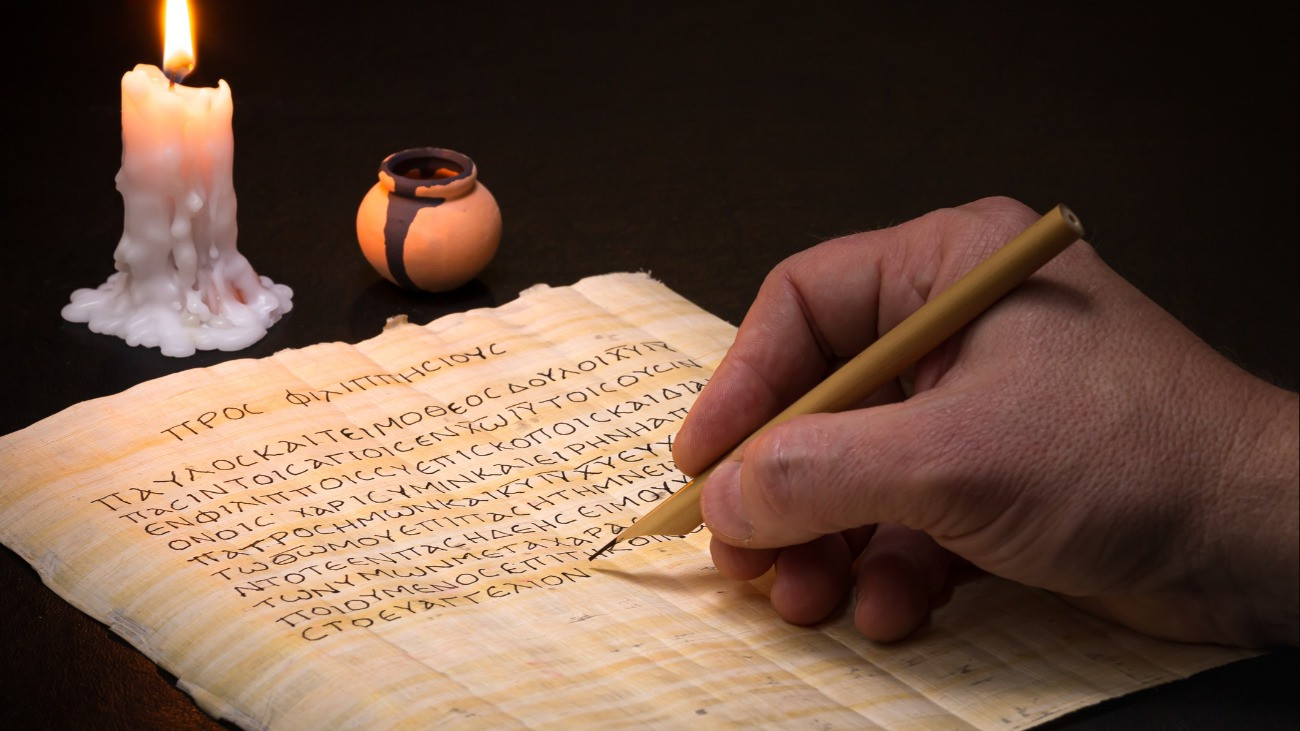 ΠΡΟϹ ΦΙΛΙΠΠΗϹΙΟΥϹ
ΠΑΥΛΟϹΚΑΙΤΕΙΜΟΘΕΟϹΔΟΥΛΟΙΧ̅Υ̅Ι̅Υ̅
ΠΑϹΙΝΤΟΙϹΑΓΙΟΙϹΕΝΧ̅Ω̅Ι̅Υ̅ΤΟΙϹΟΥϹΙΝ
ΕΝΦΙΛΙΠΠΟΙϹϹΥΕΠΙϹΚΟΠΟΙϹΚΑΙΔΙΑ
ΟΝΟΙϹ ΧΑΡΙϹΥΜΙΝΚΑΙΕΙΡΗΝΗΑΠ
ΠΑΤΡΟϹΗΜΩΝΚΑΙΚ̅Υ̅Ι̅Υ̅Χ̅Υ̅ΕΥΧ
ΤΩΘΩΜΟΥΕΠΙΠΑϹΗΤΗΜΝΕΙ
ΝΤΟΤΕΕΝΠΑϹΗΔΕΗϹΕΙΜΟΥΥ
ΤΩΝΥΜΩΝΜΕΤΑΧΑΡΑϹ
ΠΟΙΟΥΜΕΝΟϹΕΠΙΤ
ϹΤΟΕΥΑΓΓΕΛΙΟΝ